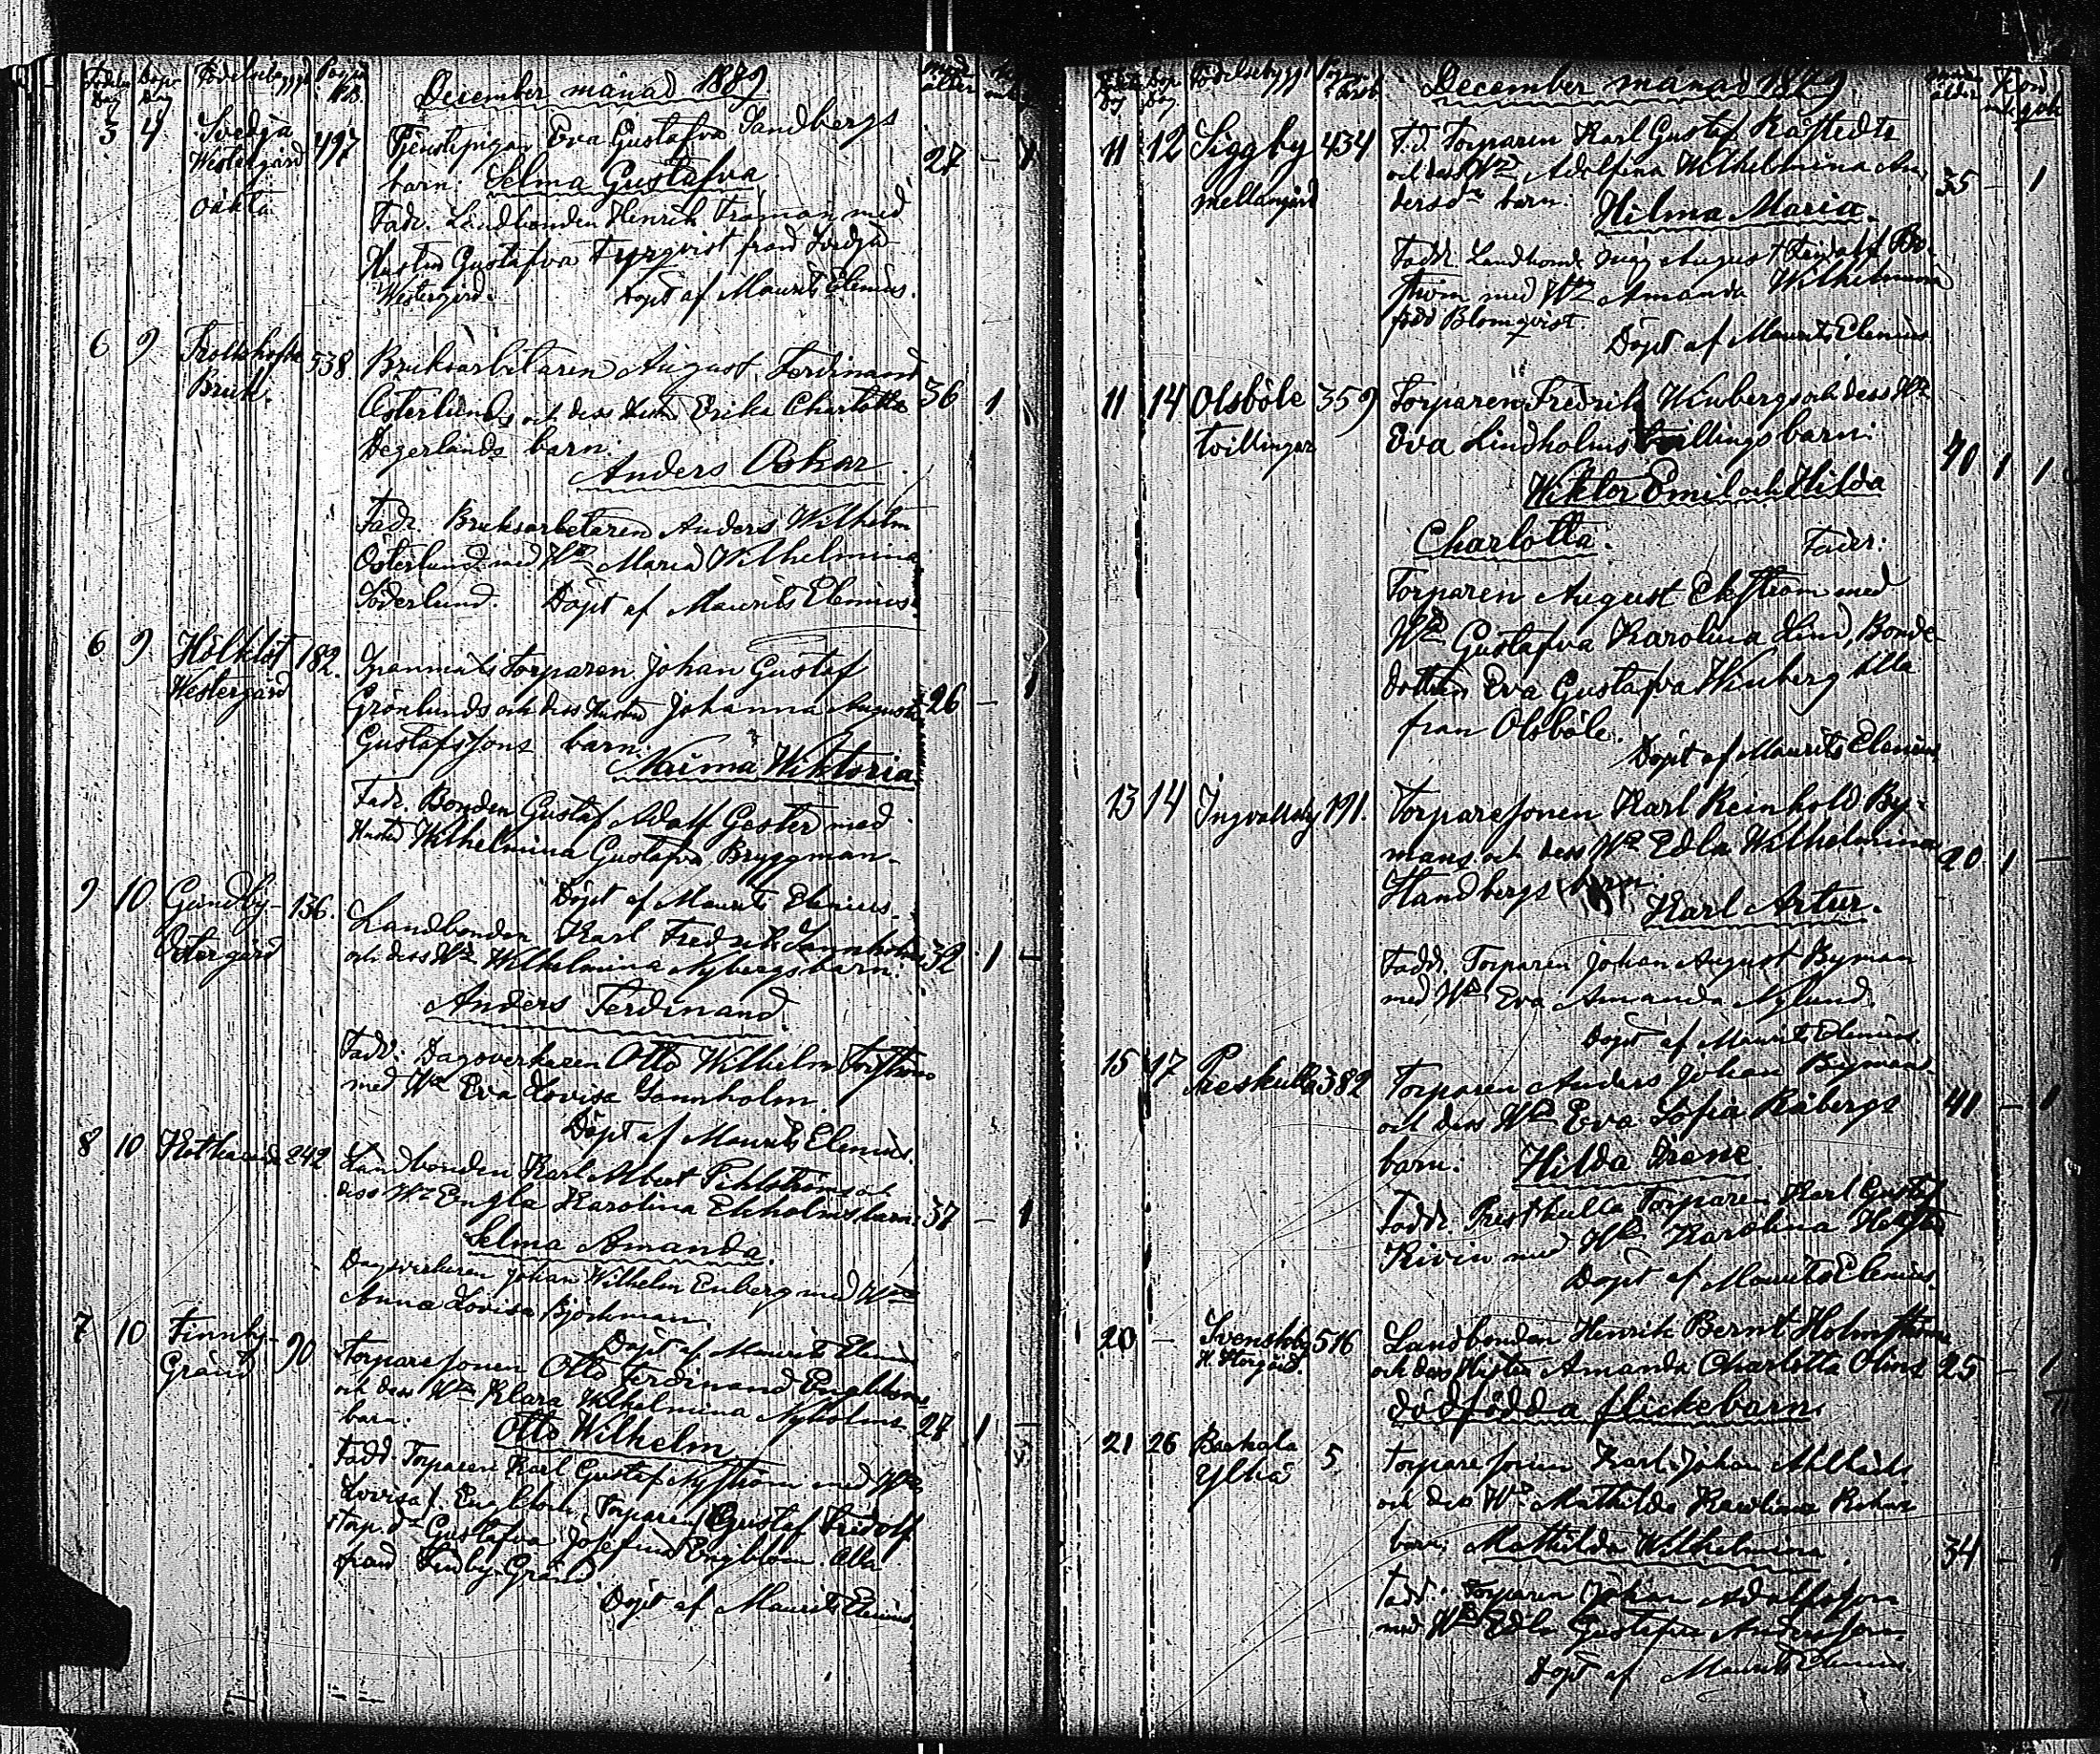 December månad 1889
3 4 Svedja 497 Tjenstepigan Eva Gustafva Sandbergs
Westergård barn: Selma Gustafva 27 - 1
oäkta
Fadr. Landbonden Henrik Framan med
Hustru Gustafva Fyrqvist från Svedja
Westergård. Döpt af Maurits Elenius.
6 9 538 Bruksarbetaren August Ferdinand
Bruk. Österlunds och dess Hustru Erika Charlotta 36 1
Degerlunds barn:
Anders Oskar
Fadr. Bruksarbetaren Anders Wilhelm
Österlund med Hu Maria Wilhelmina
Söderlund. Döpt af Maurits Elenius.
6 9 182. Torparen Johan Gustaf
Westergård Grönlunds och dess Hustru Johanna Augusta 26 - 1
Gustafssons barn:
Naima Wiktoria
Fadr. Bonden Gustaf Adolf Gester med
Hustru Wilhelmina Gustafva Bryggman.
Döpt af Maurits Elenius.
9 10 Gundby 136. Landbonden Karl Fredrik
Östergård och dess Hu Wilhelmina Nybergs barn: 32 1 -
Anders Ferdinand
Fadd: Dagsverkaren Otto Wilhelm
med Hu Eva Lovisa Sannholm.
Döpt af Maurits Elenius.
8 10 242 Landbonden Karl Albert Pihlströms och
dess Hu Engla Karolina Ekholms barn: 37 - 1
Selma Amanda.
Dagsverkaren Johan Wilhelm Enberg med Hu
Anna Lovisa Björkman.
Döpt af Maurits Elenius
7 10 Finnby- 90 Torparesonen Otto Ferdinand Engbloms
Gränd och dess Hu Klara Wilhelmina Nyholms 27 1 -
barn: Otto Wilhelm
Fadd. Torparen Karl Gustaf Nyström med Hu
Lovisa f. Engblom, Torparen Gustaf Fridolf
torp.dr Gustafva Josefina Engblom. Alla
från Finby-Gränd
Döpt af Maurits Elenius
December månad 1889
11 12 Siggby 434 T.d. Torparen Karl Gustaf Råstedts
mellangård och dess Hu Adolfina Wilhelmina An- 35 - 1
dersdrs barn: Hilma Maria.
Fadd. August Bo-
ström med Hu Amanda Wilhelmina
född Blomqvist.
Döpt af Maurits Elenius
11 14 Olsböle 359 Torparen Fredrik Winbergs och dess Hu
tvillingar Eva Lindholms tvillingsbarn: 40 1 1
Wiktor Emil och Hilda
Charlotta. Fadr:
Torparen August Ekström med
Hu Gustafva Karolina Lind, Bonde-
dottern Eva Gustafva Winberg alla
från Olsböle.
Döpt af Maurits Elenius
13 14 Ingvallsby 191. Torparesonen Karl Reinhold By-
mans och dess Hu Edla Wilhelmina 20 1 -
Strandbergs barn:
Karl Artur.
Fadd. Torparen Johan August Byman
med Hu Eva Amanda Nylund.
Döpt af Maurits Elenius.
15 17 Preskulla 382 Torparen Anders Johan Byman
och dess Hu Eva Sofia Råbergs 41 - 1
barn: Hilda Irene
Fadd. Prestkulla Torparen Karl Gustaf
med Hu Karolina
Döpt af Maurits Elenius.
20 - Svenskby 516 Landbonden Henrik Bernt Holmströms
N. Storgård. och dess Hustru Amanda Charlotta Olins 25 - 1
dödfödda flickebarn.
21 26 5 Torparesonen Karl Johan
Ylkä och dess Hu Mathilda Karolina
barn: Mathilda Wilhelmina 34 - 1
Fadd: Torparen Johan Adolfsson
med Hu Edla Gustafva Andersson.
Döpt af Maurits Elenius.